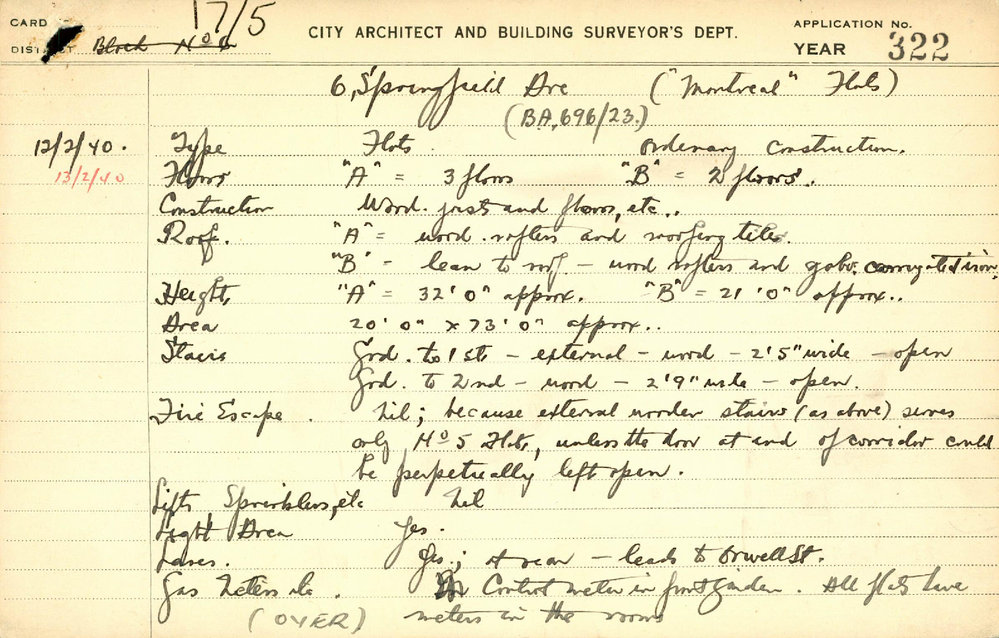 CARD 17/5
DISTRICT Block No
CITY ARCHITECT AND BUILDING SURVEYOR'S DEPT.
APPLICATION No.
YEAR 322
6, Springfield Ave ("Montreal" Flats)
(BA, 696/23.)
12/2/40. Type Flats ordinary construction.
13/2/40 Floors "A" = 3 floors "B" = 2 floors.
Construction Wood joists and floors, etc..
Roof. "A" = wood rafters and roofing tiles.
"B" - lean to roof - wood rafters and galv. corrugated iron.
Height, "A" = 32'0" approx. "B" = 21'0" approx..
Area 20'0" x 73'0" approx..
Stairs Grd. to 1st - external - wood - 2'5" wide - open
Grd. to 2nd - wood - 2'9" wide - open.
Fire Escape. Nil; because external wooden stairs (as above) serves
only No 5 Flats, unless the door at end of corridor could
be perpetually left open.
Lifts, Sprinklers, etc Nil
Light Area Yes.
Lanes. Yes; at rear - leads to Orwell St.
Gas Meters etc. Control meter in front garden. All flats have
(OVER) meters in the rooms